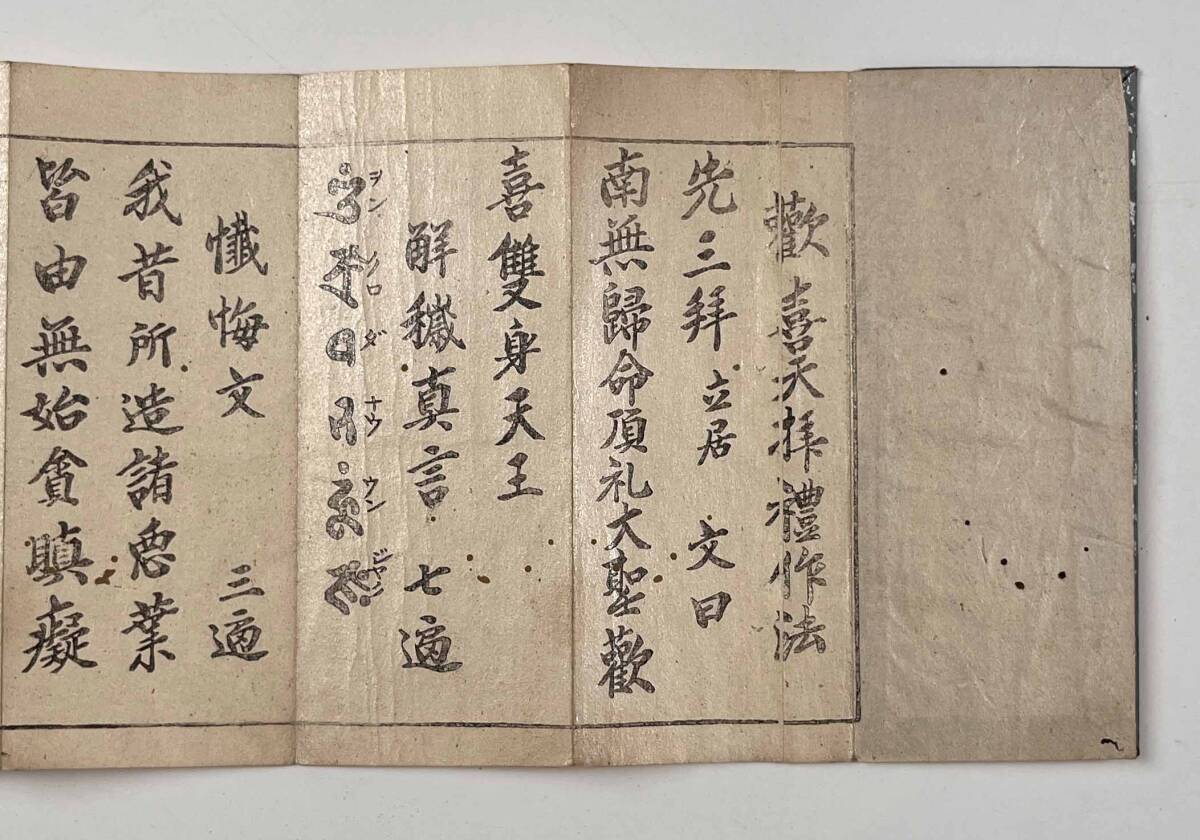 歡喜天拝禮作法
先三拜 立居 文曰
南無歸命頂礼大聖歡
喜雙身天王
解穢真言 七遍
ヲン シュロ ダ ナウ ウン ジャ
懺悔文 三遍
我昔所造諸悪業
皆由無始貪瞋癡